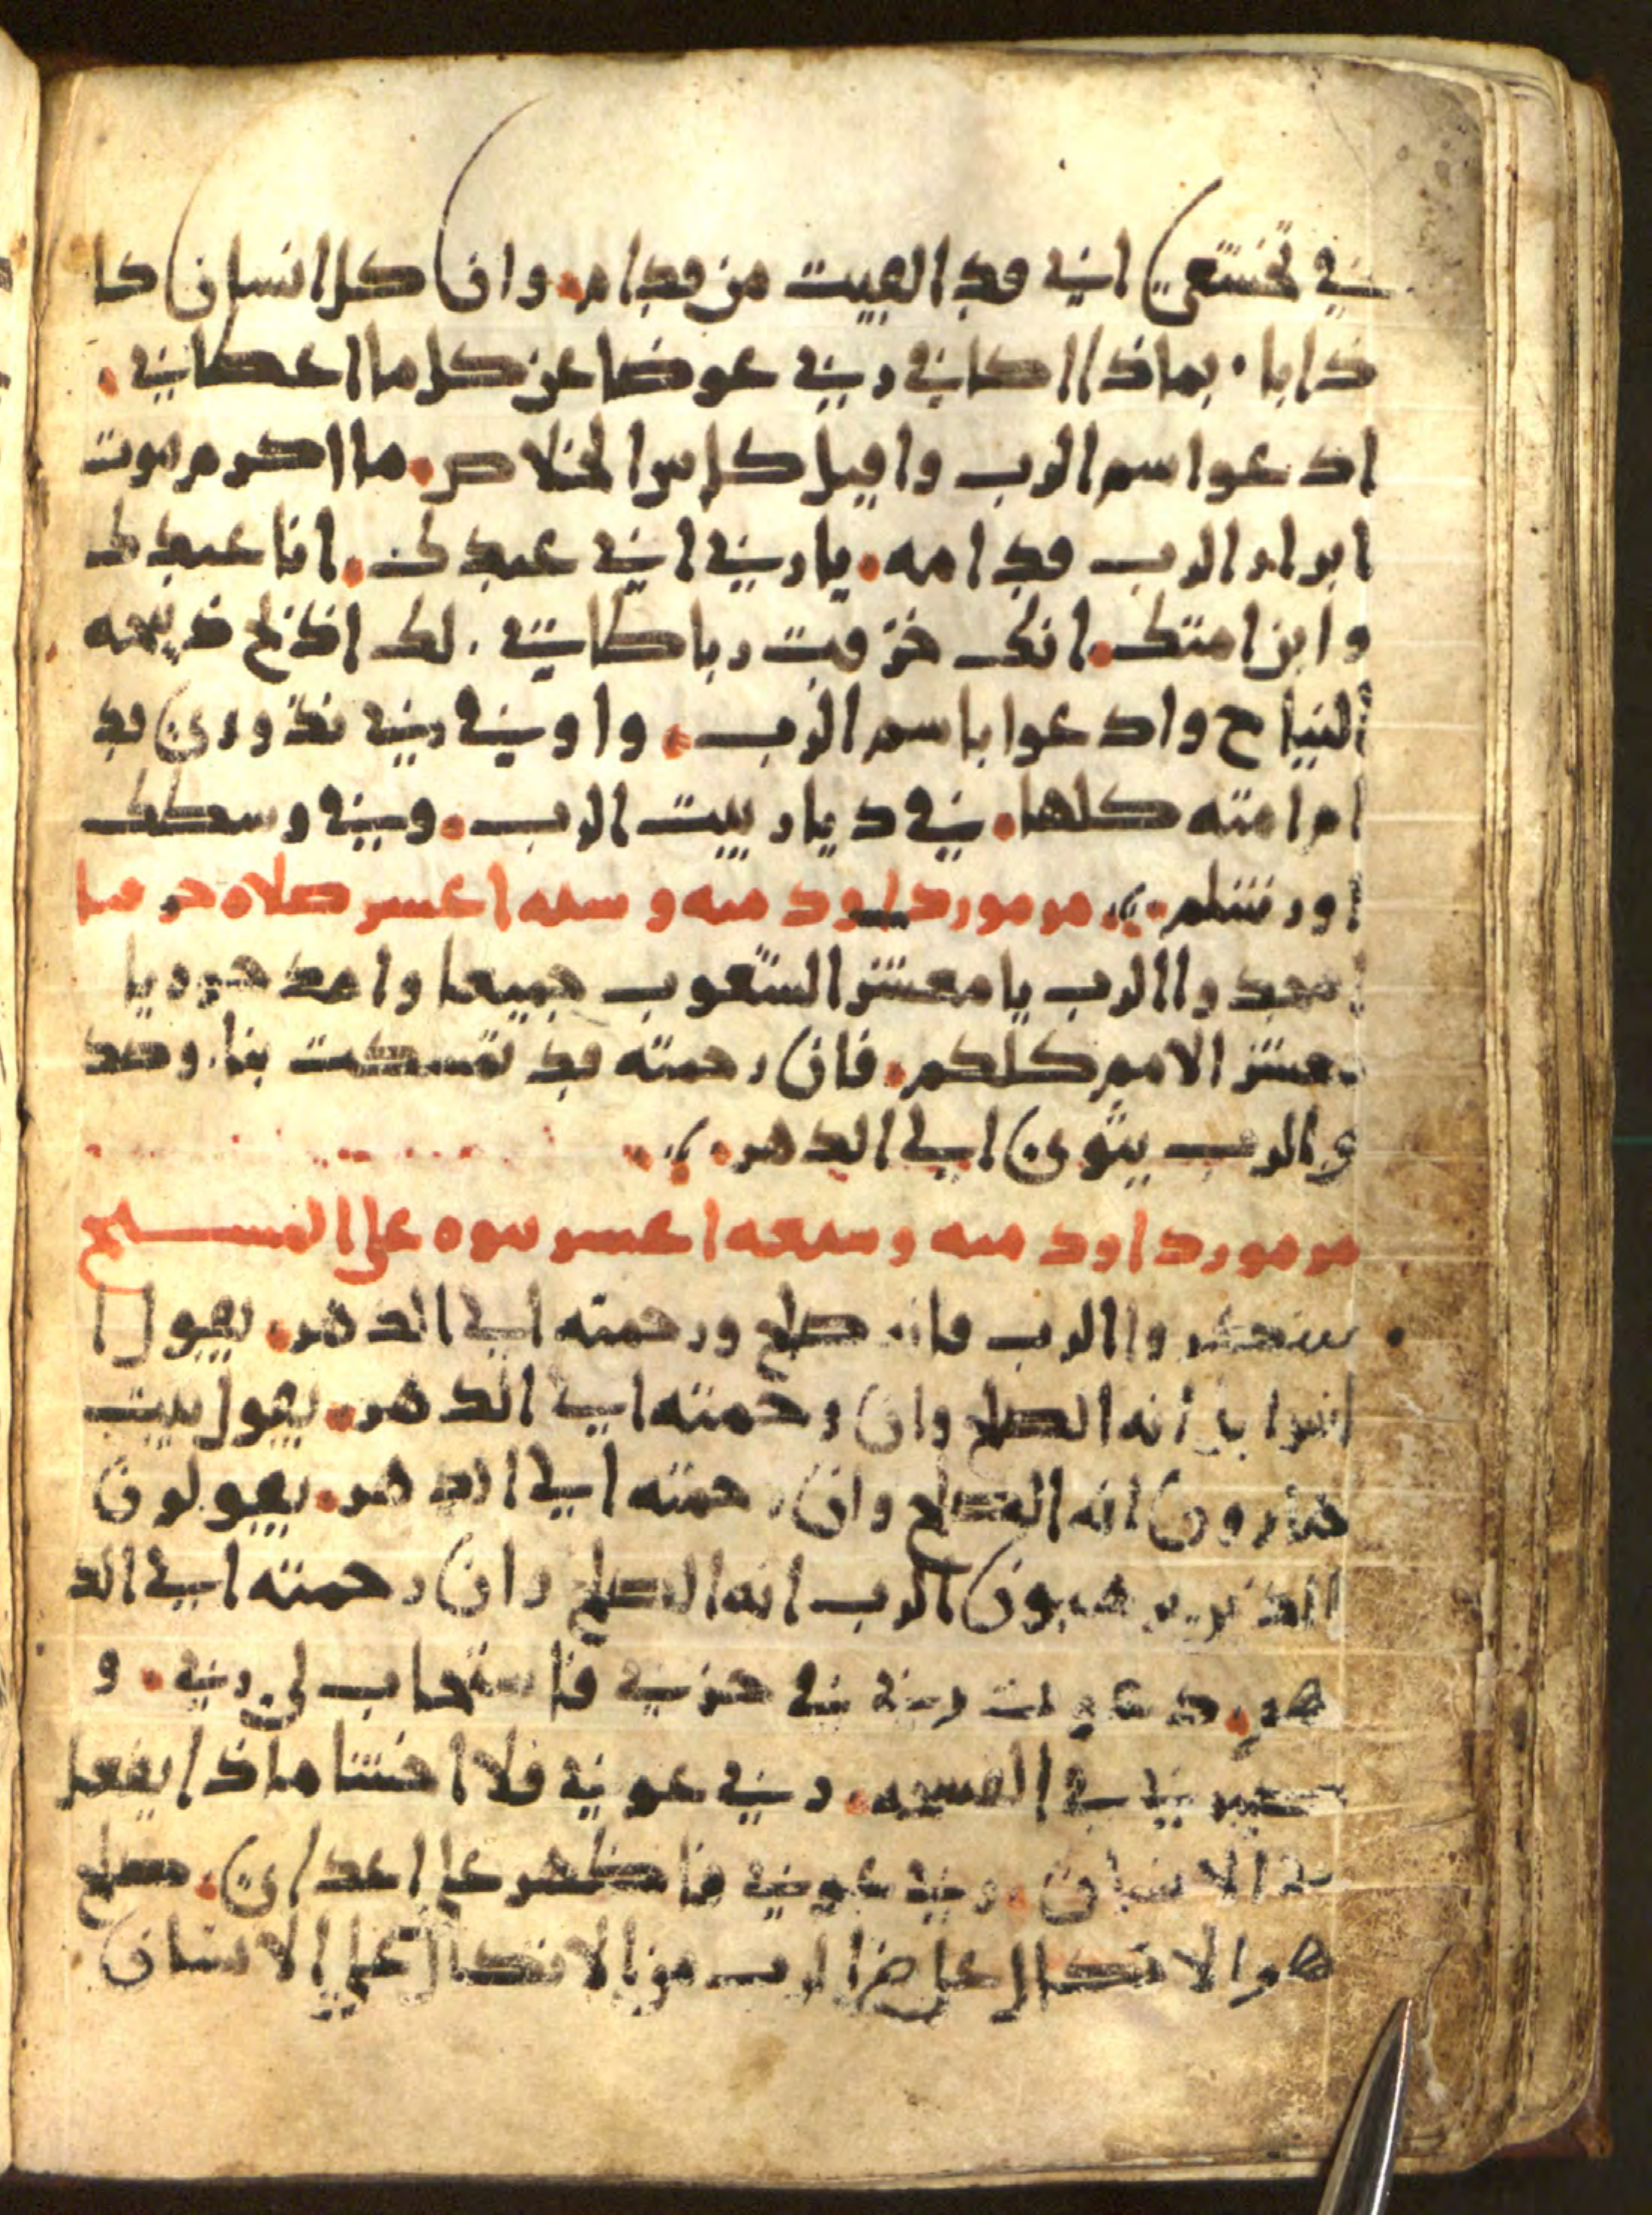 في تخشعي اني قد القيت من قدام. وان كل انسان كا
ذابا. بماذا اكافي ربي عوضا عن كل ما اعطاني.
ادعوا اسم الرب واقبل كاس الخلاص. ما اكرم موت
ابرار الرب قدامه. يا ربي اني عبدك. انا عبدك
وابن امتك. انك خرقت رباطاتي. لك اذبح ذبيحه
التياح وادعوا باسم الرب. واوفي ربي نذوري قد
ام امته كلها. في ديار بيت الرب. وفي وسطك
اورشلم. مزمور داود مىه وسىه اعسر صلاه
مجدوا الرب يا معشر الشعوب جميعا وامدحوه يا
معشر الامم كلكم. فان رحمته قد تمسكت بنا. وصد
والرب يثوي الي الدهر.
مرمور داود مىه وسىعه اعسر ىىوه على المسيح
اشكروا الرب فانه صلح ورحمته الي الدهر. يقول ا
انه الصلح وان رحمته الي الدهر. يقول بيت
هارون انه الصلح وان رحمته الي الدهر. يقولون
الذين يرهبون الرب انه الصلح وان رحمته الي الد
هر. دعوت ربي في حزني فاستجاب لي ربي. و
صيرني في الفسحه. ربي عوني فلا اخشا ماذا يفعل
بي الانسان. ربي عوني فاظهر علي اعداي. صلح
هو الاتكال علي الرب من الاتكال علي الانسان